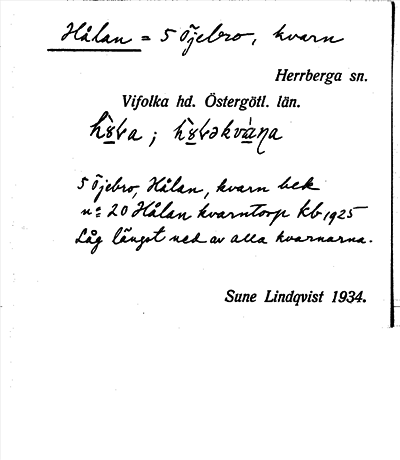 Hålan = 5 Öjebro, kvarn
Herrberga sn.
Vifolka hd. Östergötl. län.
5 Öjebro, Hålan, kvarn bek
n:o 20 Hålan kvarntorp kb 1925
Låg längst ned av alla kvarnarna.
Sune Lindqvist 1934.